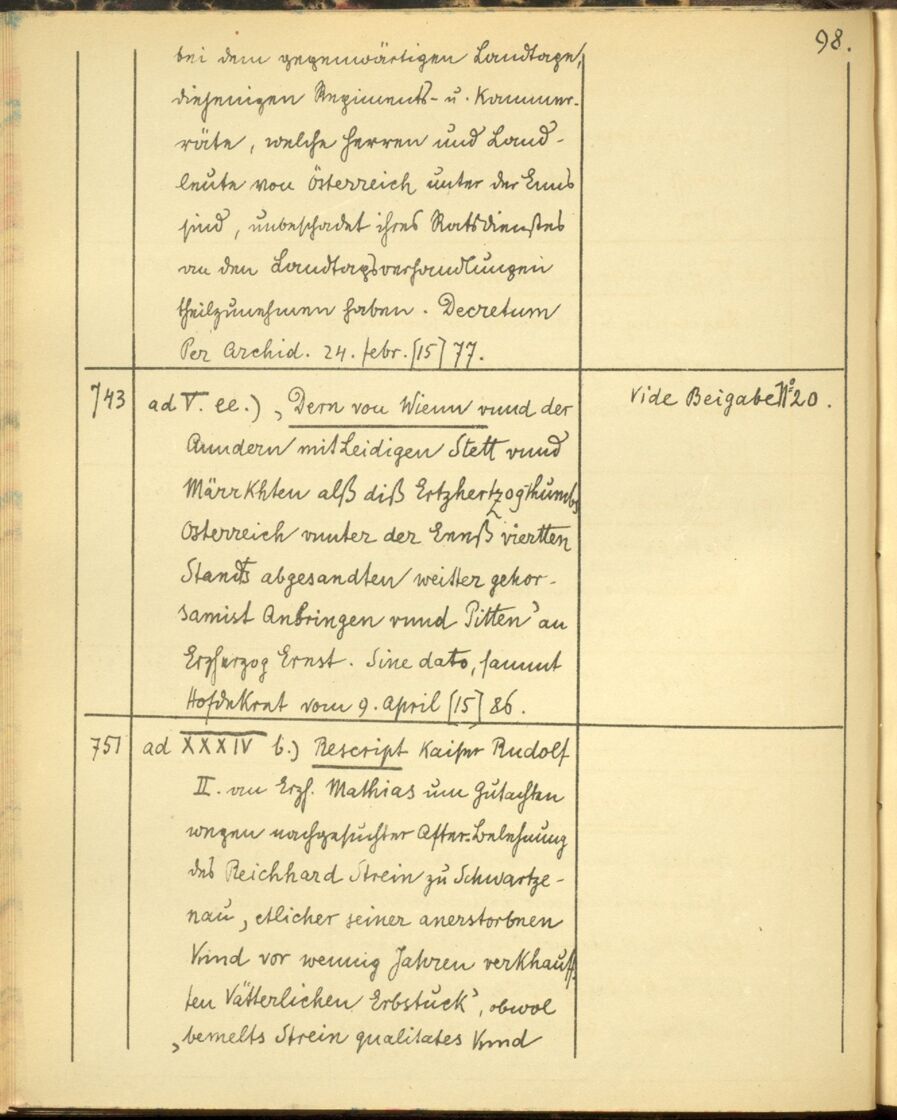 98.
bei dem gegenwärtigen Landtage,
diejenigen Regiments- u. Kammer-
räte, welche Herren und Land-
leute von Österreich unter der Enns
sind, unbeschadet ihres Ratsdienstes
an den Landtagsverhandlungen
theilzunehmen haben. Decretum
Per Archid. 24. febr. [15] 77.
743 ad V. ee.) „Dern von Wienn vnnd der Vide Beigabe No 20.
Anndern mitLeidigen Stett vnnd
Märrkhten alß diß Ertzhertzogthumbs
Osterreich vnnter der Ennß viertten
Standts abgesandten weitter gehor-
samist Anbringen vnnd Pitten" an
Erzherzog Ernst. Sine dato, sammt
Hofdekret vom 9. April [15] 86.
751 ad XXXIV b.) Rescript Kaiser Rudolf
II. an Erzh. Mathias um Gutachten
wegen nachgesuchter After-Belehnung
des Reichhard Strein zu Schwartze-
nau „etlicher seiner anerstorbnen
Vnnd vor wennig Jahren verkhauff-
ten Vätterlichen Erbstuck", obwol
„bemelts Strein qualitates Vnnd